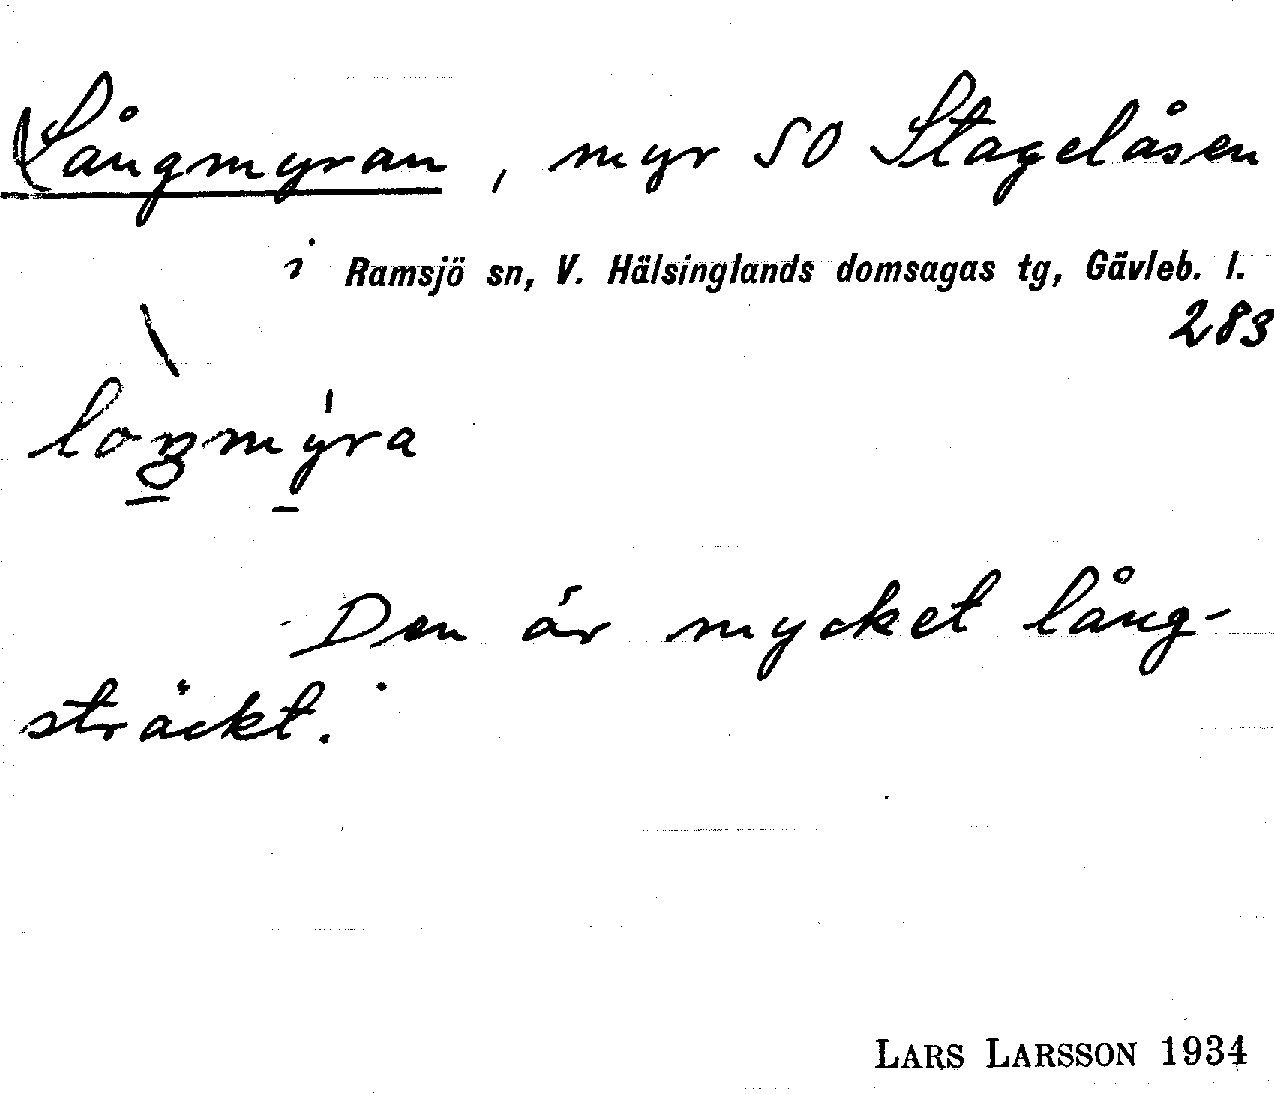 Långmyran, myr SO Stagelåsen
i Ramsjö sn, V. Hälsinglands domsagas tg, Gävleb. l.
283
loŋmýra
Den är mycket lång-
sträckt.
LARS LARSSON 1934